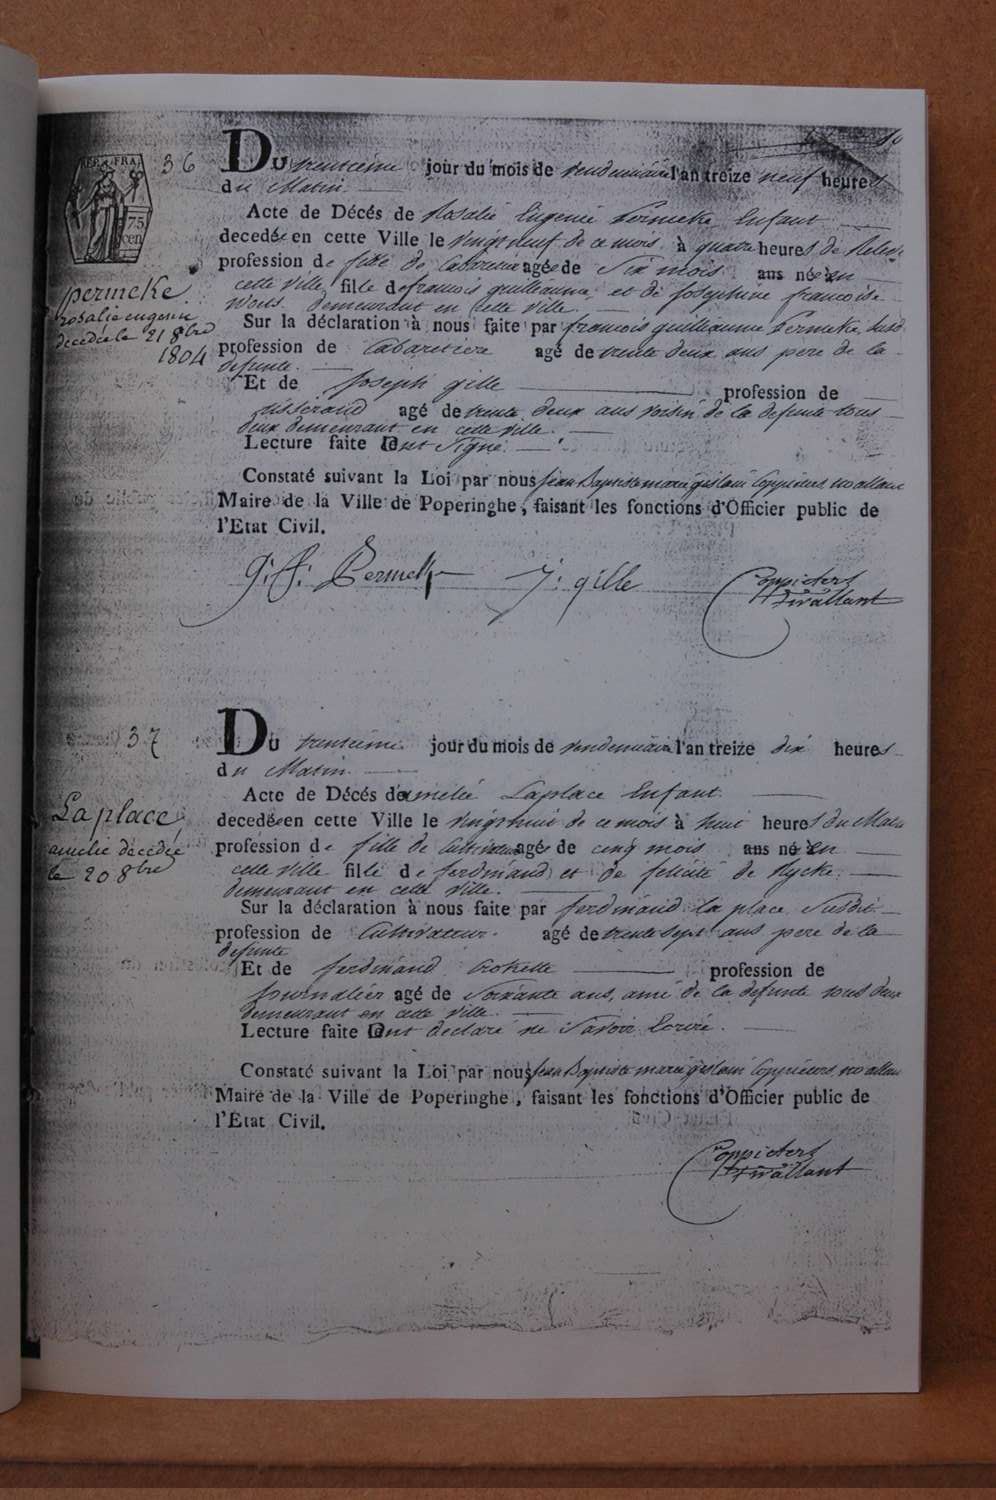 REP. FRA.
75
cen
36
permeke
rosalie eugenie
decedée le 21 8bre
1804
Du trentieme jour du mois de vendemiaire l'an treize neuf heures
du Matin
Acte de Décés de Rosalie Eugenie Permeke Enfant
decedée en cette Ville le vingt neuf de ce mois à quatre heures de Relevé
profession de fille de Cabaretier agée de Six mois ans née en
cette Ville fille de francois guilleaume et de Josephine francoise
Worts demeurant en cette Ville
Sur la déclaration à nous faite par francois guilleaume Permeke susd
profession de Cabaretiere agé de trente deux ans pere de la
defunte.
Et de Joseph gille profession de
tisserand agé de trente deux ans voisin de la defunte tous
deux demeurant en cette ville.
Lecture faite ont Signé.
Constaté suivant la Loi par nous Jean Baptiste marie gislain Coppieters wallant
Maire de la Ville de Poperinghe, faisant les fonctions d'Officier public de
l'Etat Civil.
g: f: Permeke J: gille Coppieters
t' wallant
37
Laplace
amelie decedée
le 20 8bre
Du trentieme jour du mois de vendemiaire l'an treize dix heures
du Matin
Acte de Décés de amelie Laplace Enfant
decedée en cette Ville le vingt huit de ce mois à huit heures du Matin
profession de fille de Cultivateur agée de cinq mois ans née en
cette ville fille de ferdinand et de felicite de Rycke
demeurant en cette ville.
Sur la déclaration à nous faite par ferdinand la place Susdit
profession de Cultivateur. agé de trente sept ans pere de la
defunte
Et de ferdinand profession de
Journalier agé de Soixante ans, ami de la defunte tous deux
demeurant en cette ville.
Lecture faite ont declaré ne Savoir Ecrire.
Constaté suivant la Loi par nous Jean Baptiste marie gislain Coppieters wallant
Maire de la Ville de Poperinghe, faisant les fonctions d'Officier public de
l'Etat Civil.
Coppieters
t' wallant